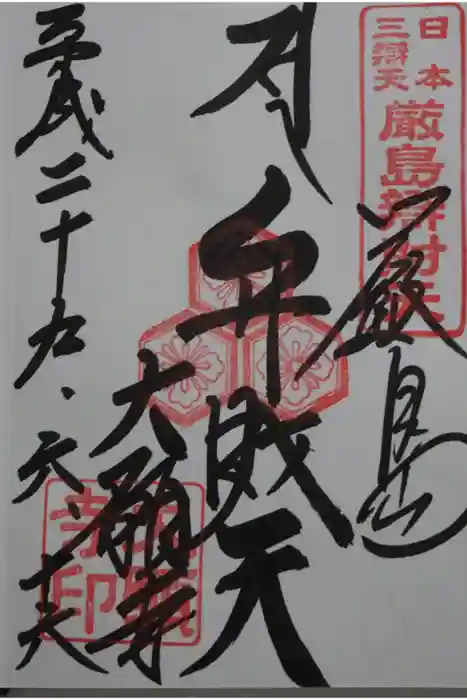 日本
三辨天
厳島辨財天
厳島
弁財天
大願寺
大願
寺印
平成二十九、六、